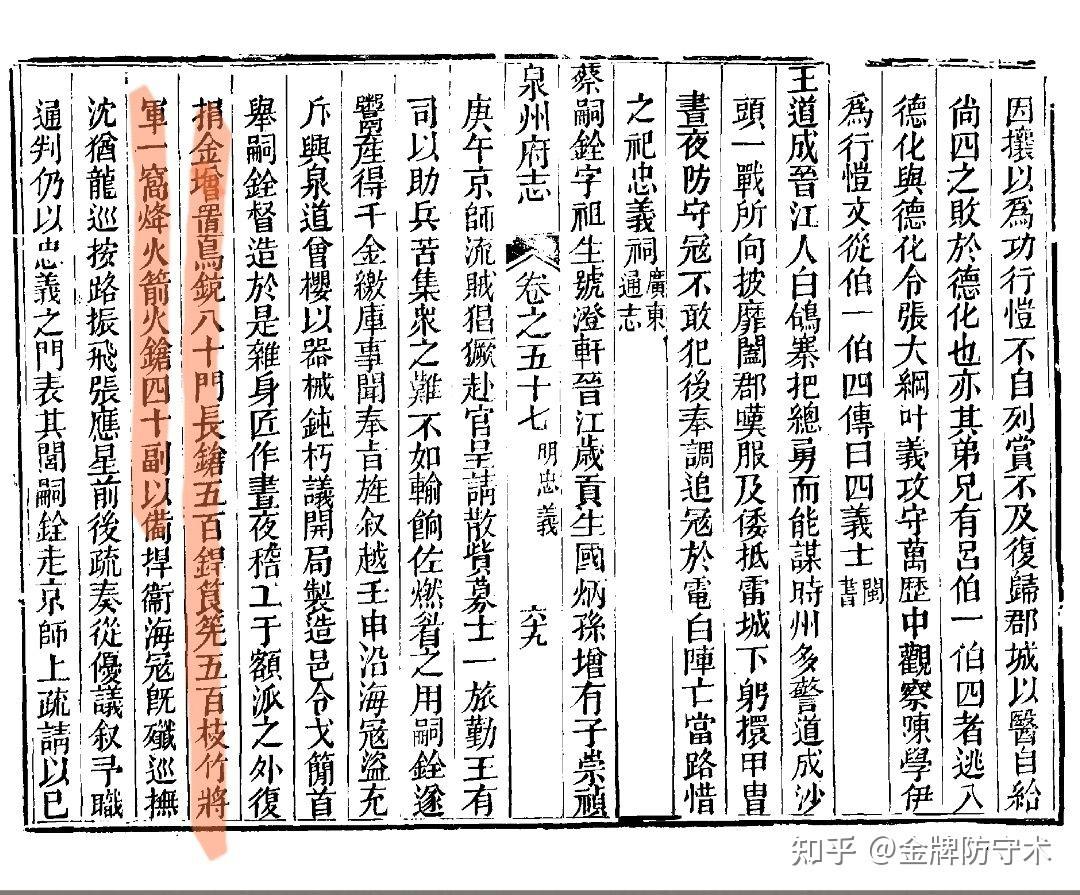 因攘以爲功行愷不自列賞不及復歸郡城以醫自給
尙四之敗於德化也亦其弟兄有呂伯一伯四者逃入
德化與德化令張大綱叶義攻守萬歷中觀察陳學伊
爲行愷文從伯一伯四傳曰四義士閩書
王道成晉江人白鴿寨把總勇而能謀時州多警道成沙
頭一戰所向披靡闔郡嘆服及倭抵雷城下躬擐甲胄
晝夜防守寇不敢犯後奉調追寇於電白陣亡當路惜
之祀忠義祠廣東通志
蔡嗣銓字祖生號澄軒晉江歲貢生國炳孫增有子崇禎
泉州府志 卷之五十七 明忠義 六九
庚午京師流賊猖獗赴官呈請散貲募士一旅勤王有
司以助兵苦集衆之難不如輸餉佐燃眉之用嗣銓遂
鬻產得千金繳庫事聞奉旨旌叙越壬申沿海寇盜充
斥興泉道曾櫻以器械鈍朽議開局製造邑令戈簡首
舉嗣銓督造於是雜身匠作晝夜稽工于額派之外復
捐金增置鳥銃八十門長鎗五百鋅筤筅五百枝竹將
軍一窩烽火箭火鎗四十副以備捍衞海寇旣殲巡撫
沈猶龍巡按路振飛張應星前後疏奏從優議叙予職
通判仍以忠義之門表其閭嗣銓走京師上疏請以已
知乎 @金牌防守术